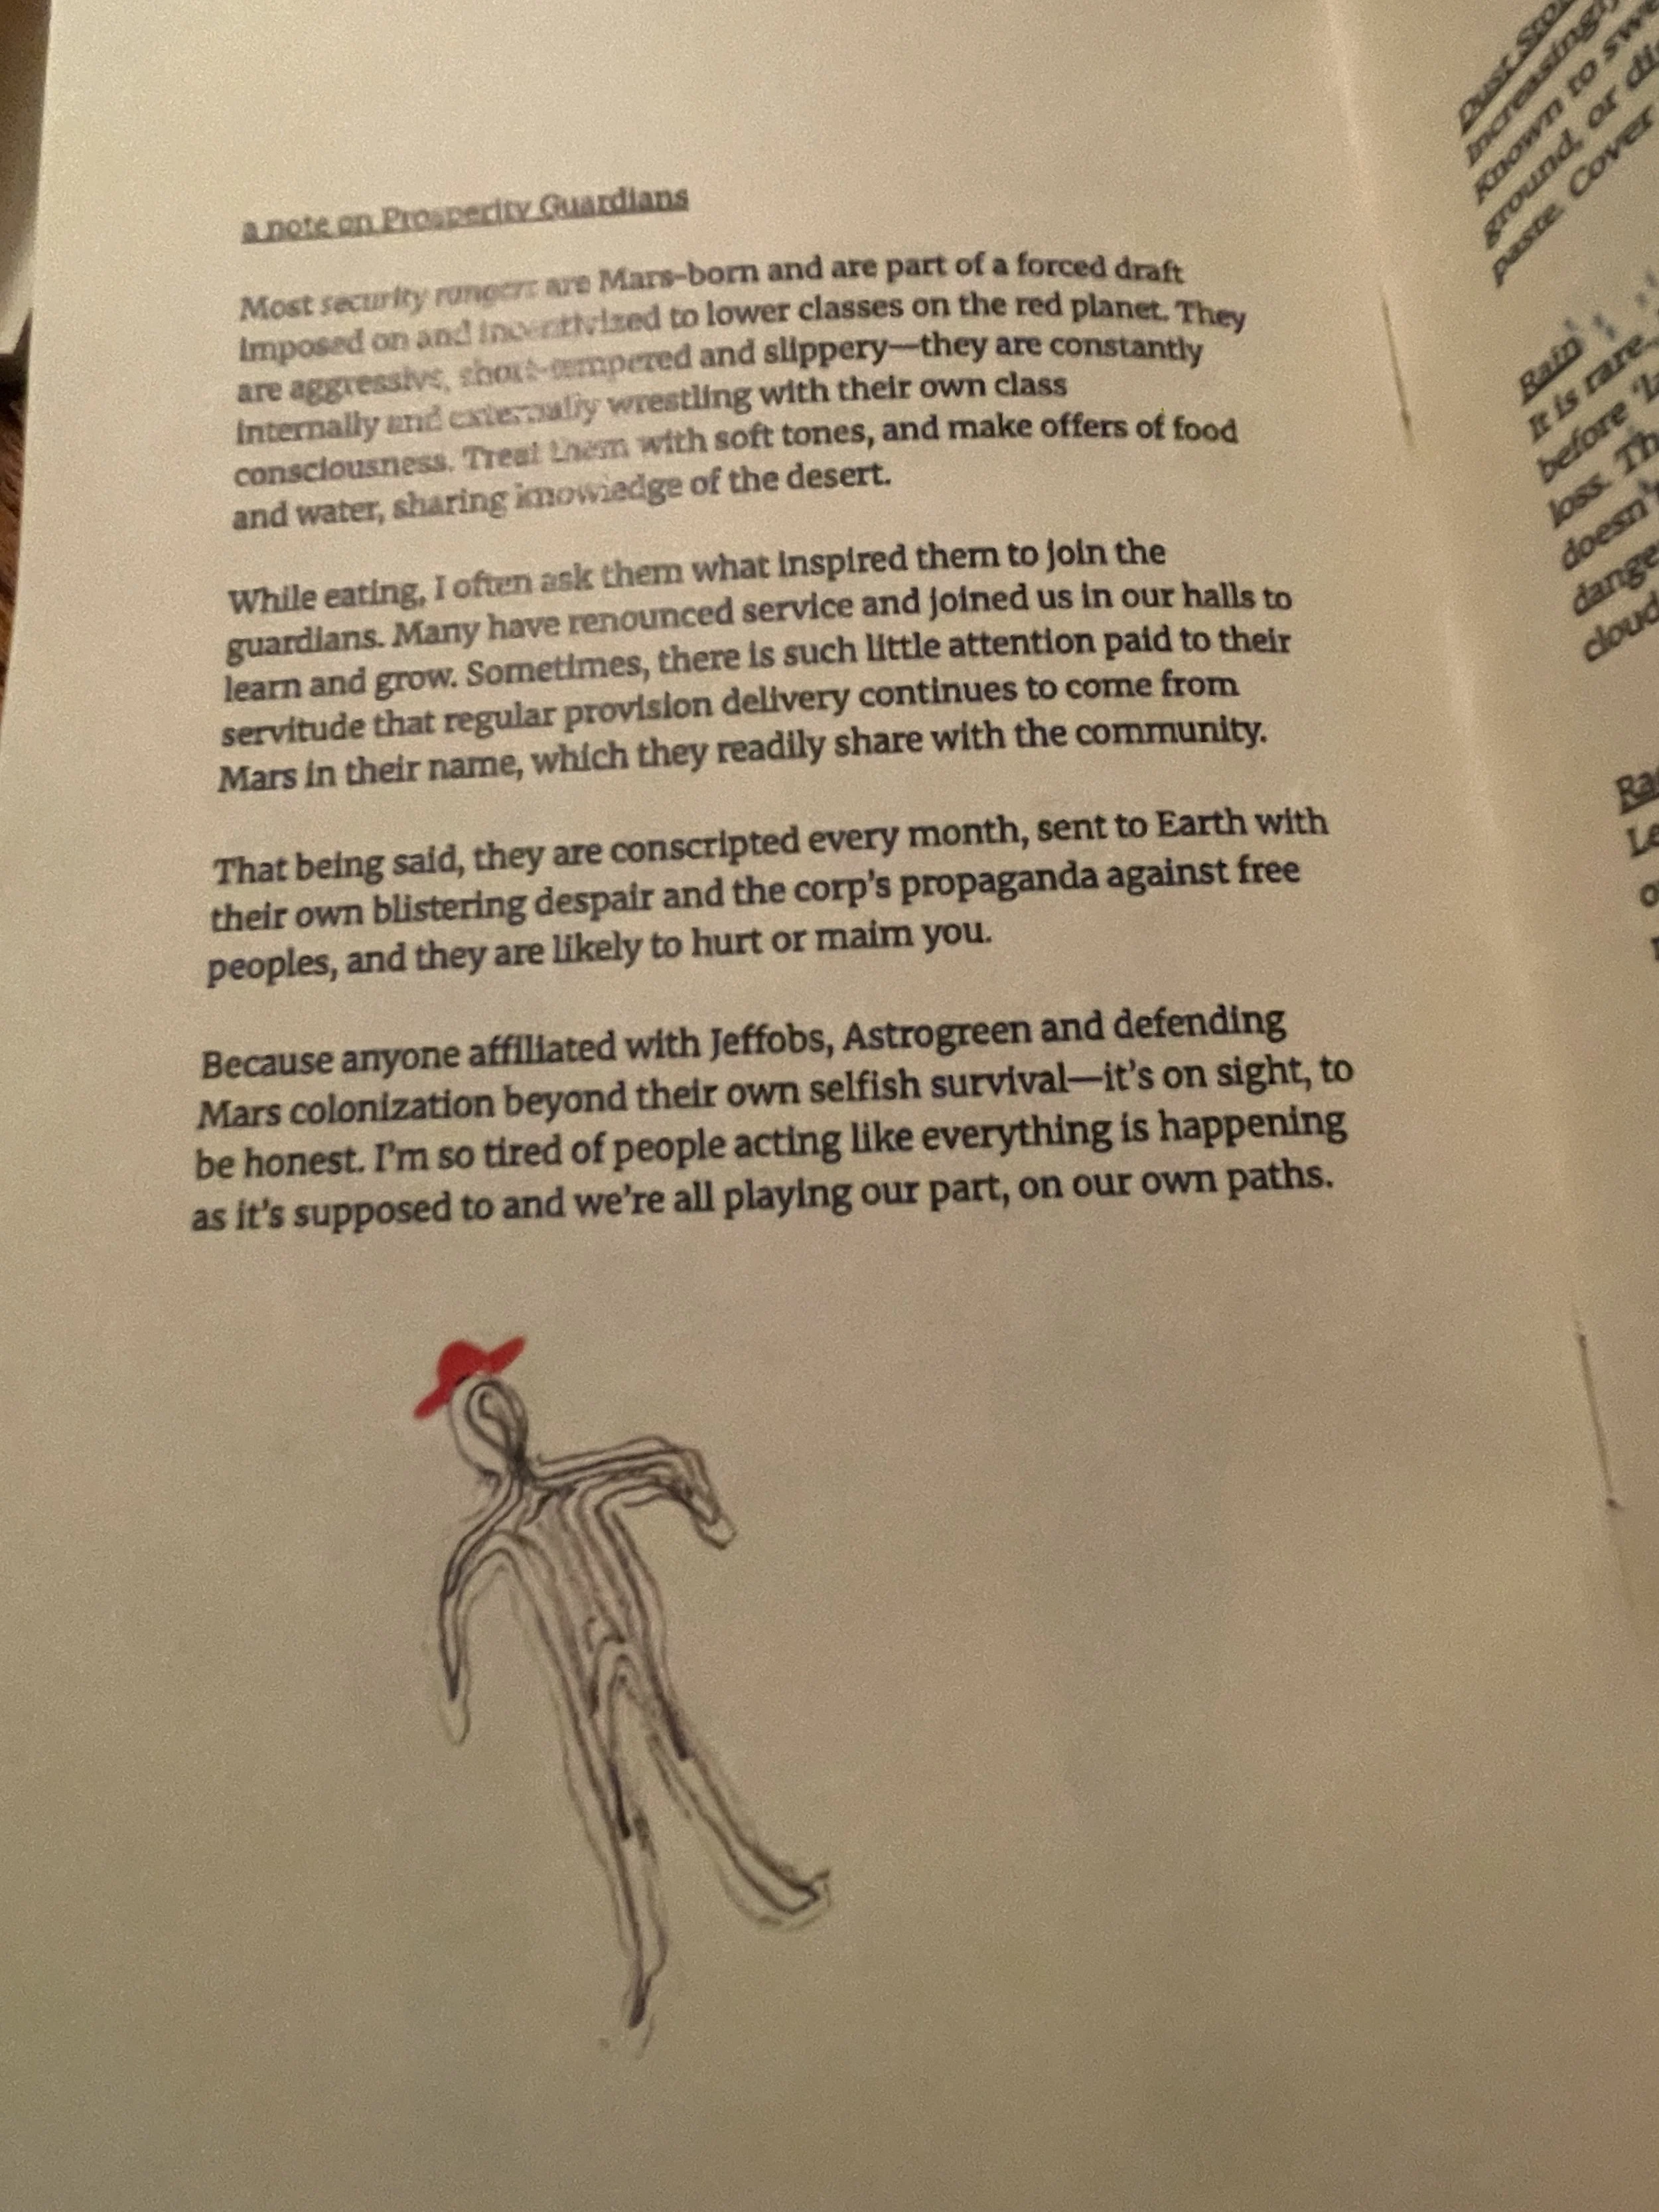 a note on Prosperity Guardians
Most security rangers are Mars-born and are part of a forced draft
imposed on and incentivized to lower classes on the red planet. They
are aggressive, short-tempered and slippery—they are constantly
internally and externally wrestling with their own class
consciousness. Treat them with soft tones, and make offers of food
and water, sharing knowledge of the desert.
While eating, I often ask them what inspired them to join the
guardians. Many have renounced service and joined us in our halls to
learn and grow. Sometimes, there is such little attention paid to their
servitude that regular provision delivery continues to come from
Mars in their name, which they readily share with the community.
That being said, they are conscripted every month, sent to Earth with
their own blistering despair and the corp's propaganda against free
peoples, and they are likely to hurt or maim you.
Because anyone affiliated with Jeffobs, Astrogreen and defending
Mars colonization beyond their own selfish survival—it's on sight, to
be honest. I'm so tired of people acting like everything is happening
as it's supposed to and we're all playing our part, on our own paths.
Dust
Increasingly
Known to
ground, or
paste. Cover
Rain
It is rare.
before
loss.
doesn't